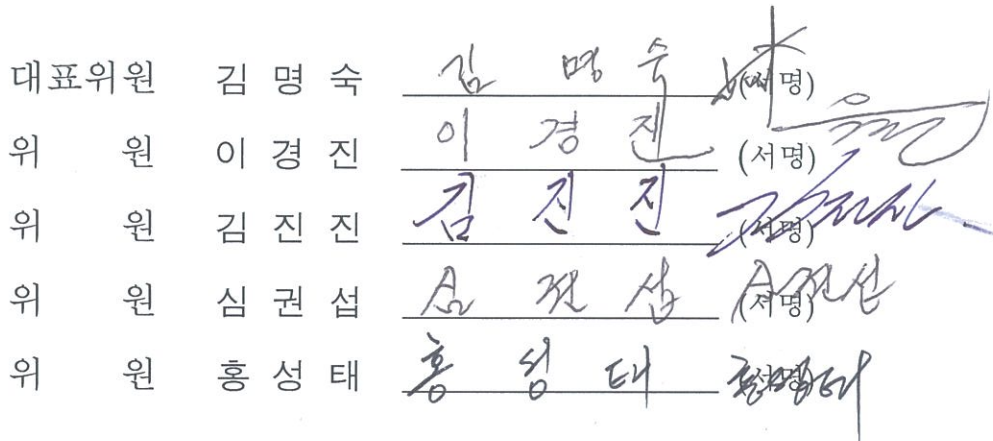 대표위원 김 명 숙 김 명 숙 (서명)
위 원 이 경 진 이 경 진 (서명)
위 원 김 진 진 김 진 진 (서명)
위 원 심 권 섭 심 권 섭 (서명)
위 원 홍 성 태 홍 성 태 (서명)